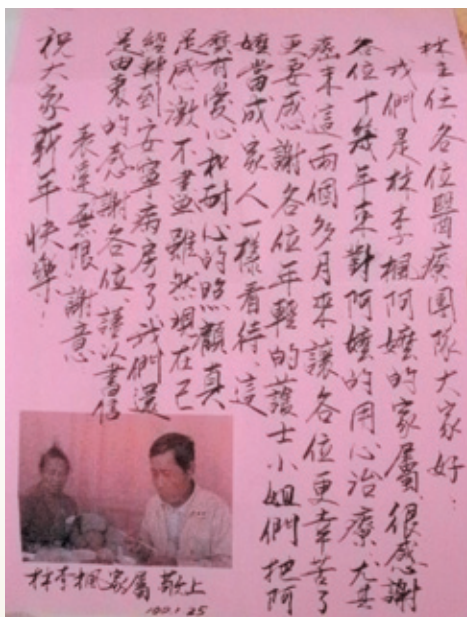 林主任、各位醫療團隊大家好：
我們是林李楓阿嬤的家屬、很感謝
各位十幾年來對阿嬤的用心治療、尤其
癌末這兩個多月來讓各位更辛苦了
更要感謝各位年輕的護士小姐們把阿
嬤當成家人一樣看待、這
麼有愛心和耐心的照顧真
是感激不盡雖然現在已
經轉到安寧病房了我們還
是由衷的感謝各位、謹以書信
表達無限謝意
祝大家新年快樂！
林李楓家屬敬上
100.1.25